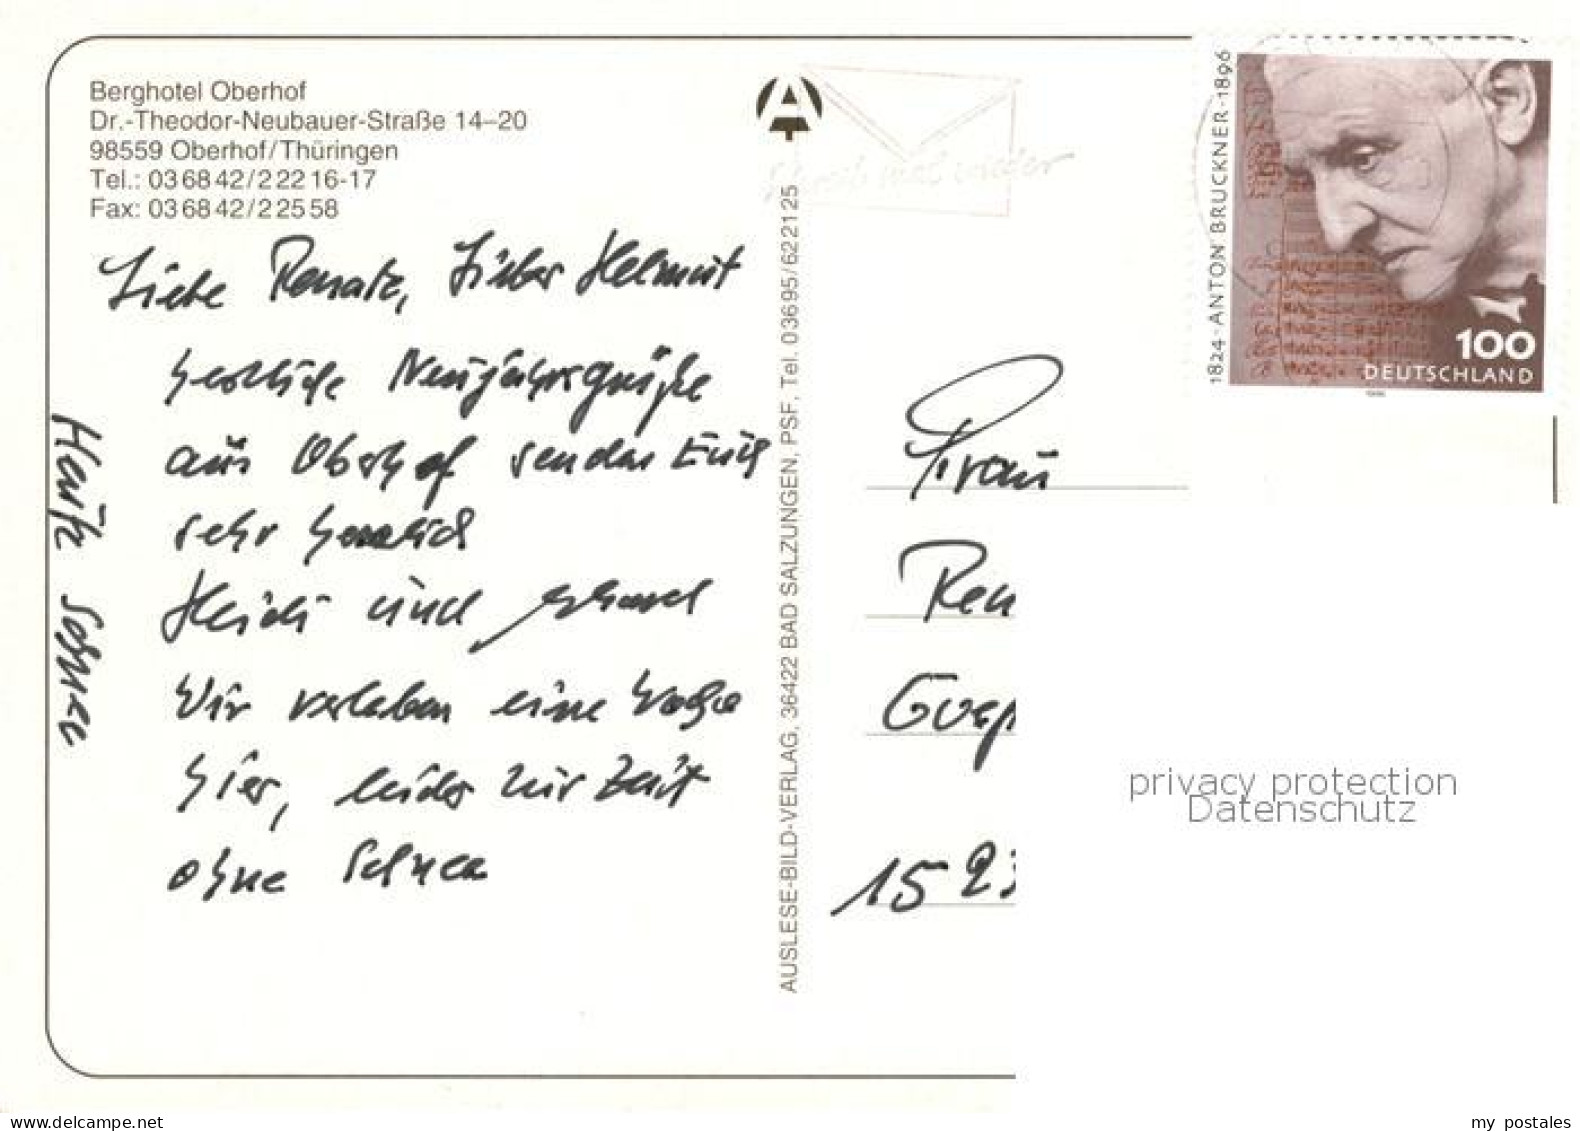 Berghotel Oberhof
Dr.-Theodor-Neubauer-Straße 14–20
98559 Oberhof/Thüringen
Tel.: 036842/22216-17
Fax: 036842/22558
Liebe Renate, Lieber Helmut
herzliche Neujahrsgrüße
aus Oberhof senden Euch
sehr herzlich
Heidi und
Wir verleben eine Woche
hier, leider zur Zeit
ohne Schnee
Heute Schnee
AUSLESE-BILD-VERLAG, 36422 BAD SALZUNGEN, PSF, Tel. 03695/622125
Schreib mal wieder
1824 - ANTON BRUCKNER - 1896
100
DEUTSCHLAND
Frau
Ren
Goep
15 23
privacy protection
Datenschutz
www.delcampe.net
my_postales